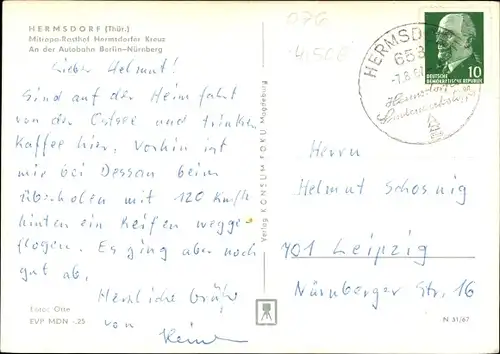 HERMSDORF (Thür.)
Mitropa-Rasthof Hermsdorfer Kreuz
An der Autobahn Berlin-Nürnberg
Lieber Helmut!
Sind auf der Heimfahrt
von der Ostsee und trinken
Kaffee hier. Vorhin ist
mir bei Dessau beim
überholen mit 120 Km/h
hinten ein Reifen wegge-
flogen. Es ging aber noch
gut ab.
Herzliche Grüße
von
Foto: Otte
EVP MDN -.25
Verlag KONSUM FOKU Magdeburg
HERMSD
653
-7.8.6
DEUTSCHE
DEMOKRATISCHE REPUBLIK
10
Herrn
Helmut Schosnig
701 Leipzig
Nürnberger Str. 16
N 31/67